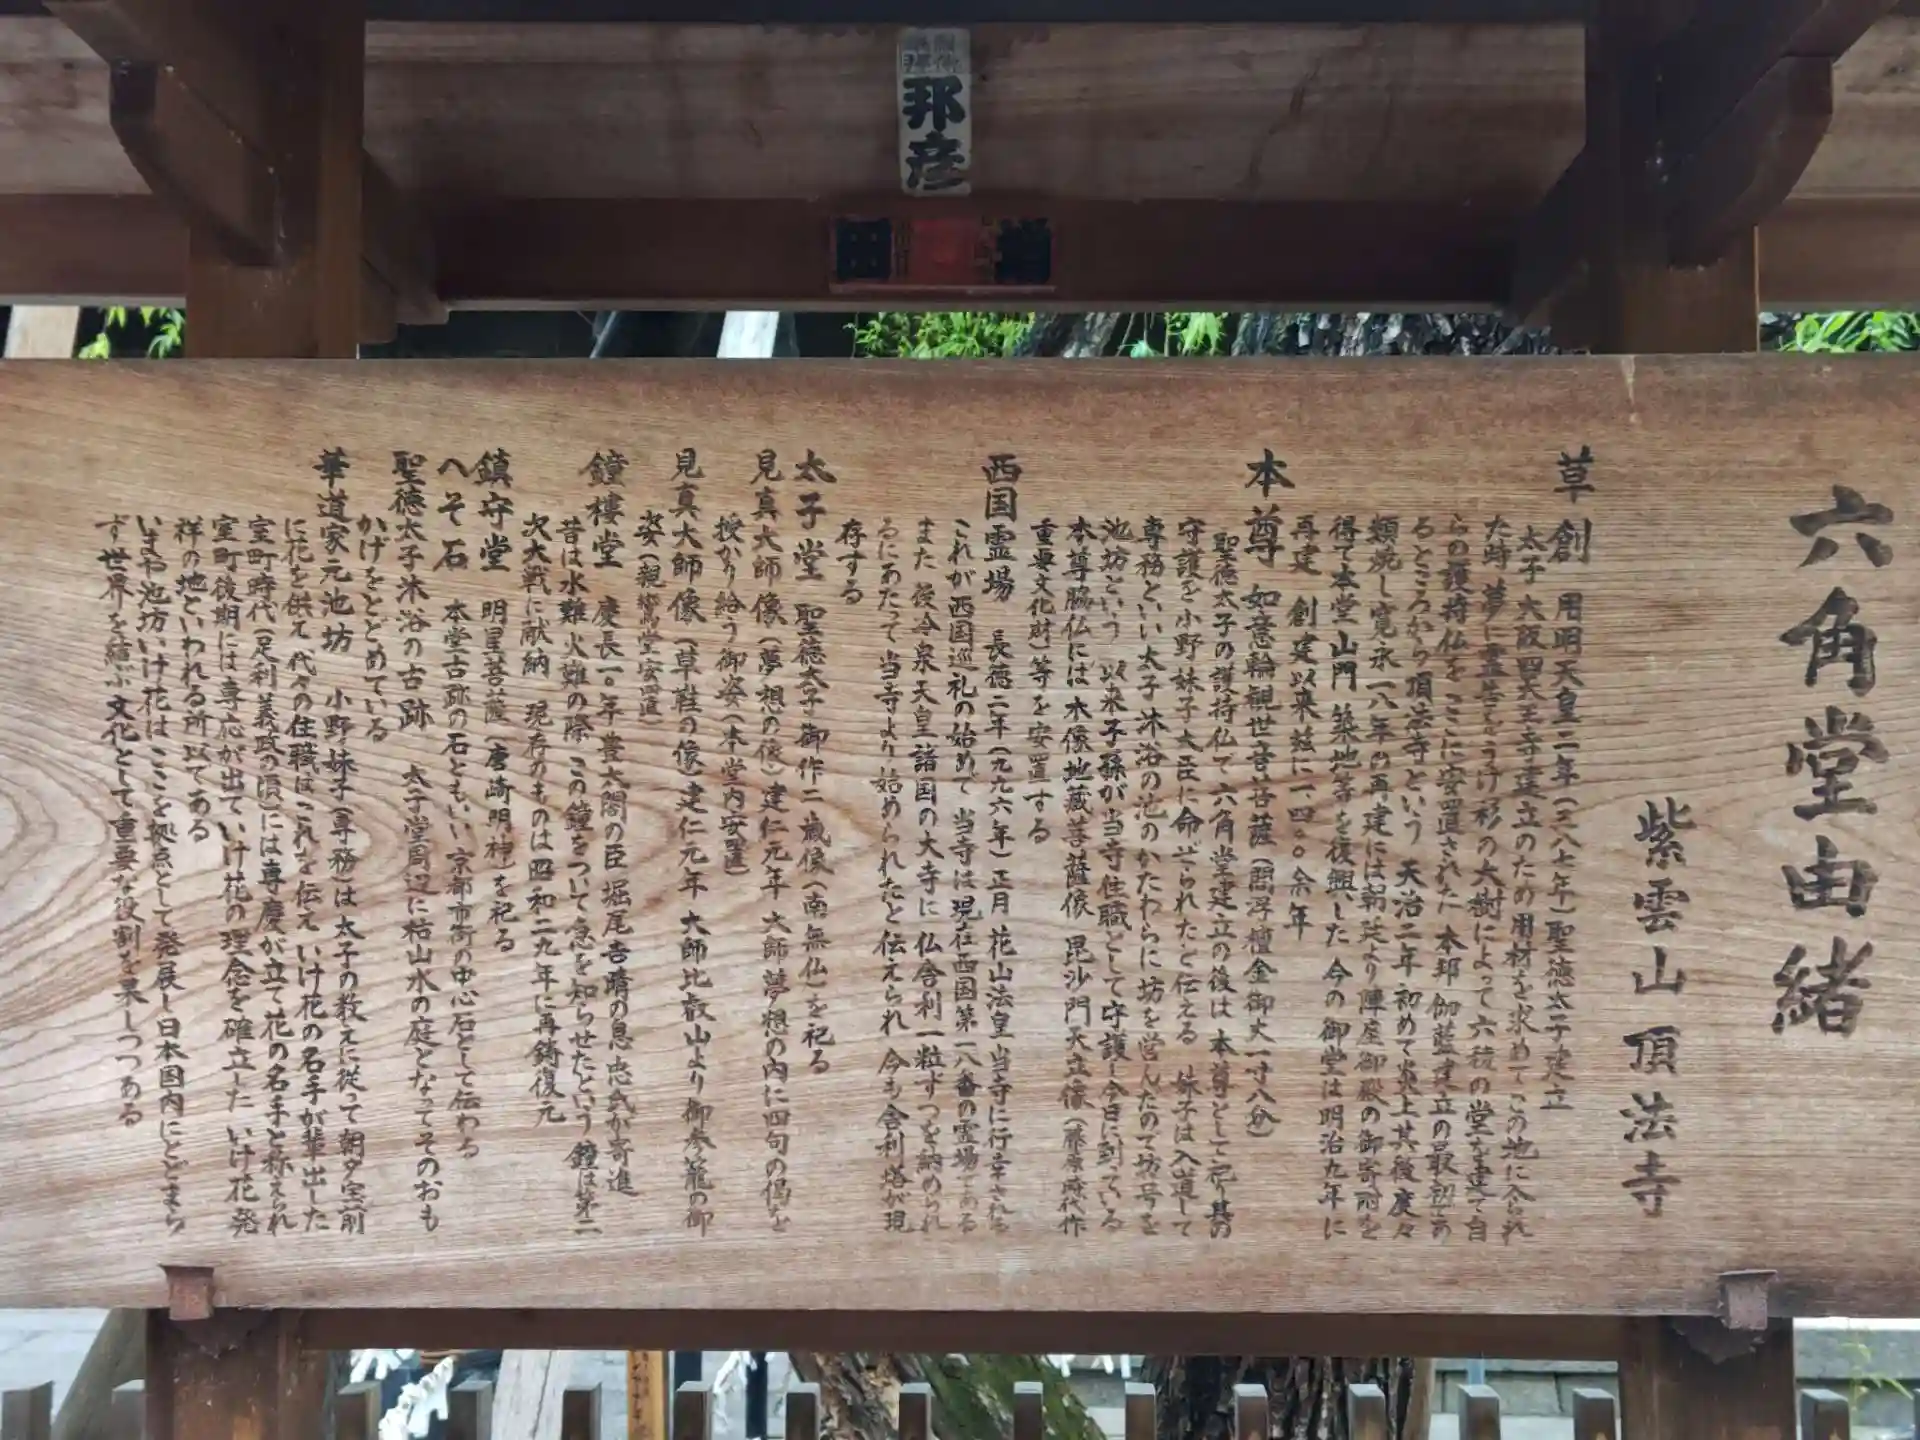 六角堂由緒
紫雲山頂法寺
草創 用明天皇二年(五八七年)聖徳太子建立
太子 大阪四天王寺建立のため用材を求めてこの地に入られ
た時 夢に霊告をうけ杉の大樹によって六稜の堂を建て自
らの護持仏を ここに安置された 本邦伽藍建立の最初であ
るところから頂法寺という 天治二年初めて炎上其後度々
類焼し寛永一八年の再建には朝廷より陣座御殿の御寄附を
得て本堂 山門 築地等を復興した 今の御堂は明治九年に
再建 創建以来玆に一、四〇〇余年
本尊 如意輪観世音菩薩(閻浮檀金御丈一寸八分)
聖徳太子の護持仏で六角堂建立の後は 本尊として祀り其の
守護を小野妹子大臣に命ぜられたと伝える 妹子は入道して
専務といい太子沐浴の池のかたわらに坊を営んだので坊号を
池坊という 以来子孫が当寺住職として守護し今日に到っている
本尊脇仏には木像地蔵菩薩像 毘沙門天立像(藤原時代作
重要文化財)等を安置する
西国霊場 長徳二年(九九六年)正月 花山法皇当寺に行幸される
これが西国巡礼の始めで 当寺は現在西国第一八番の霊場である
また 後冷泉天皇諸国の大寺に仏舎利一粒ずつを納められ
るにあたって当寺より始められたと伝えられ 今も舎利塔が現
存する
太子堂 聖徳太子御作二歳像(南無仏)を祀る
見真大師像(夢想の像)建仁元年 大師夢想の内に四句の偈を
授かり給う御姿(本堂内安置)
見真大師像(草鞋の像)建仁元年 大師比叡山より御参籠の御
姿(親鸞堂安置)
鐘樓堂 慶長一〇年豊太閤の臣堀尾吉晴の息忠氏が寄進
昔は水難火難の際 この鐘をついて急を知らせたという 鐘は第二
次大戦に献納 現存のものは昭和二九年に再鋳復元
鎮守堂 明星菩薩(唐崎明神)を祀る
へそ石 本堂古跡の石ともいい京都市街の中心石として伝わる
聖徳太子沐浴の古跡 太子堂周辺に枯山水の庭となってそのおも
かげをとどめている
華道家元池坊 小野妹子(専務)は太子の教えに従って朝夕宝前
に花を供え 代々の住職はこれを伝え いけ花の名手が輩出した
室町時代(足利義政の頃)には専慶が立て花の名手と称えられ
室町後期には専応が出ていけ花の理念を確立した いけ花発
祥の地といわれる所以である
いまや池坊いけ花は ここを拠点として発展し日本国内にとどまら
ず世界を結ぶ文化として重要な役割を果しつつある
邦彦